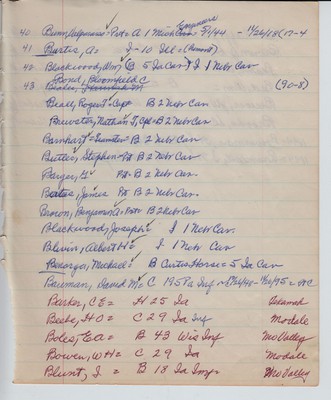 40 Bunn, Alpnas = Pvt = A 1 Mich Cav = 5/1/44 - 11/26/18 (17-4
41 Burtis, A = I - 10 Ill = (Removed)
42 Blackwood, Wm) B 5 Ia Cav I 1 Nebr Cav
Bond, Bloomfield C
43 (90-8)
Beall, Roger = Capt B 2 Nebr Cav
Brewster, Nathan T, Cpl = B 2 Nebr Cav
Barnhart = B 2 Nebr Cav
Butler, Stephen = Pvt B 2 Nebr Cav
Barges, G Pvt = B 2 Nebr Cav
Bates, James Pvt B 2 Nebr Cav.
Brown, Benjamin A = Pvt = B 2 Nebr Cav
Blackwood, Joseph = I 1 Nebr Cav.
Blevin, Albert H = I 1 Nebr Cav
Michael = B Curtis Horse = 5 Ia Cav
David M, C 195 Pa Inf = 2/24/65 - 1/26/75 = NC
Barker, C E = H 25 Ia
Beebe, H O = C 29 Ia Inf Modale
Boles, E a = B 43 Wis Inf Mo Valley
Bowen, W H = C 29 Ia Modale
Blunt, I = B 18 Ia Inf = Mo Valley